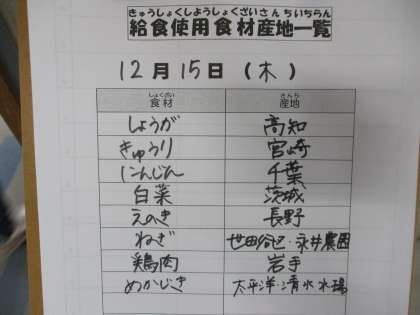 きゅうしょくしようしょくざいさんちいちらん
給食使用食材産地一覧
12月15日(木)
しょくざい さんち
食材 産地
しょうが 高知
きゅうり 宮崎
にんじん 千葉
白菜 茨城
えのき 長野
ねぎ 世田谷区・永井農園
鶏肉 岩手
めかじき 太平洋・清水水場